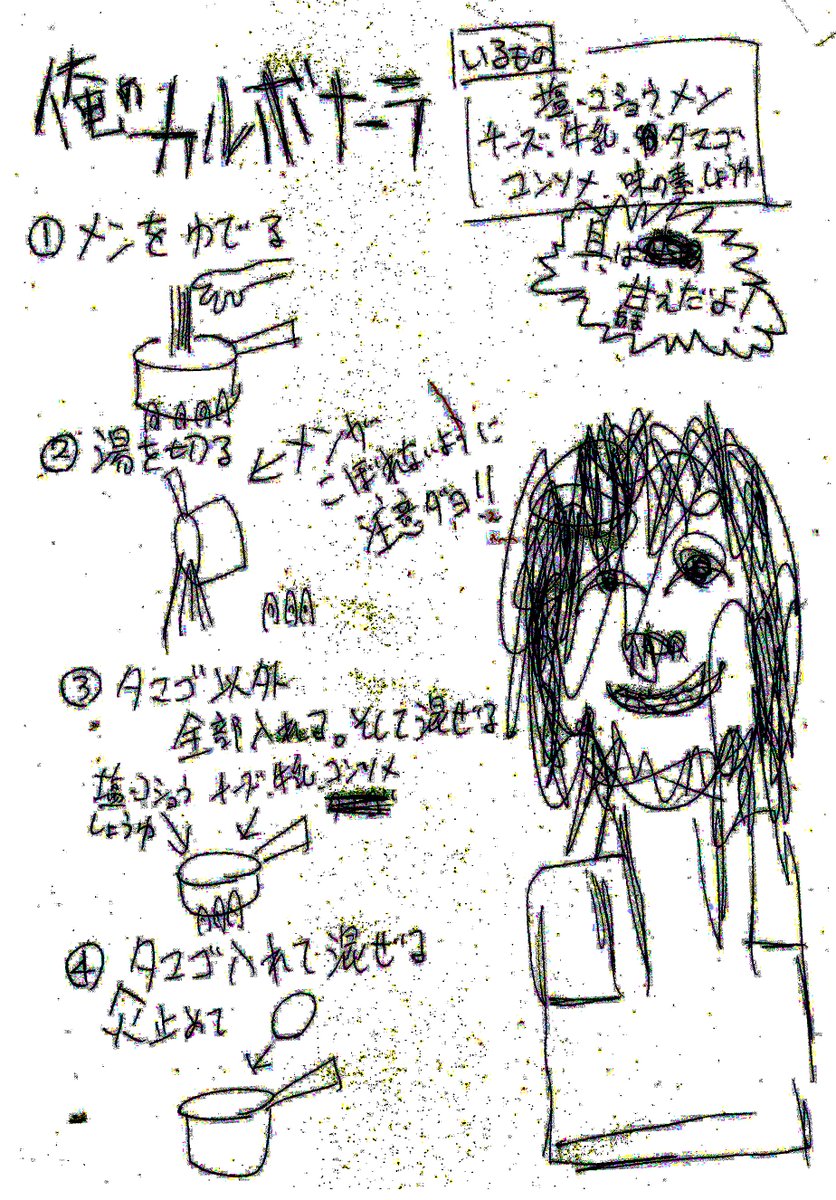 俺のカルボナーラ
いるもの
塩・コショウ、メン
チーズ、牛乳、タマゴ
コンソメ、味の素、しょうゆ
具は
甘えだよ
あま
①メンをゆでる
②湯を切る
メンが
こぼれないように
注意ダヨ!!
③タマゴ以外
全部入れる。そして混ぜる
塩・コショウ チーズ、牛乳、コンソメ
しょうゆ
④タマゴ入れて混ぜる
火止めて